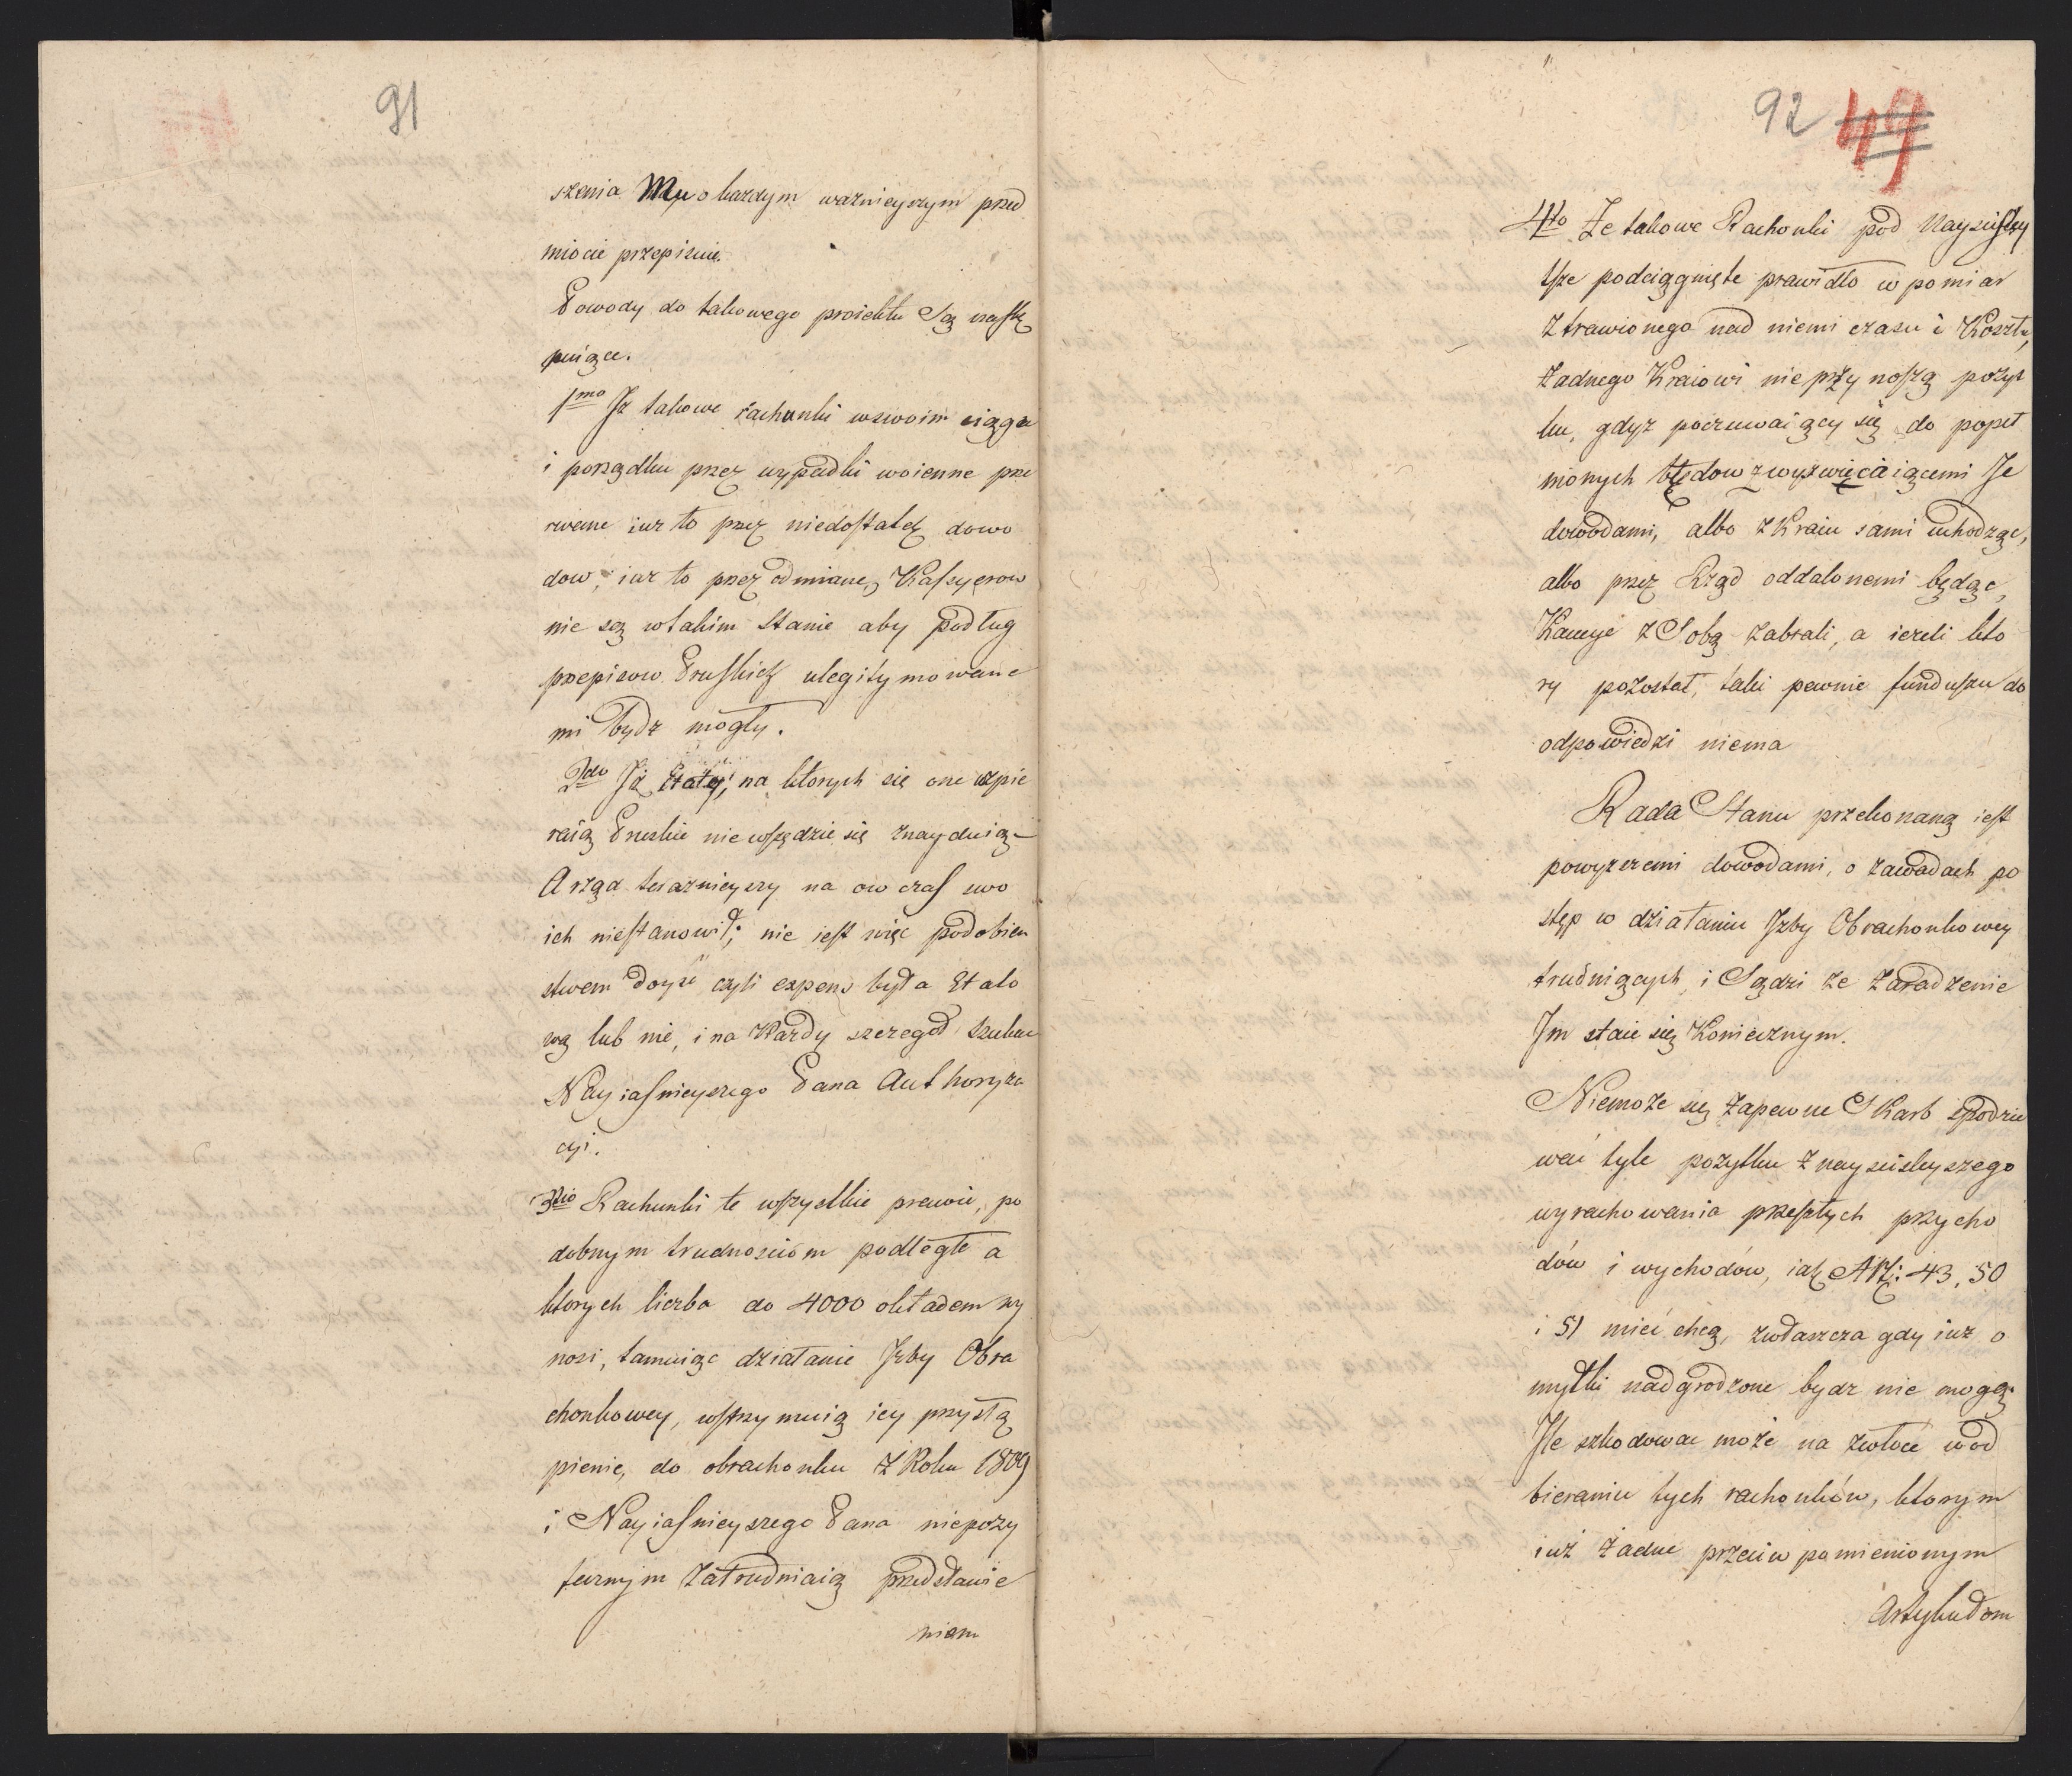 91
szenia Mu o kazdym ważnieyszym przed
miocie przepisuie.
Powody do takowego proiektu Są nastę
puiące.
1mo Jż takowe rachunki w swoim ciągu
i porządku przez wypadki woienne prze
rwane iuż to przez niedostatek dowo
dow, iuż to przez odmianę Kassyerow
nie są w takim Stanie aby podług
przepisow Pruskich ulegitymowane
mi bydz mogły.
2do Jż Etaty, na ktorych się one wspie
raią Pruskie nie wszędzie się znayduią
A rząd teraznieyszy na ow czas swo
ich niestanowił; nie iest więc podobień
stwem doyść czyli expens była Etato
wą lub nie, i na Każdy szczegoł szukać
Nayiasnieyszego Pana Authoryza
cyi.
3tio Rachunki te wszystkie prawie, po
dobnym trudnosciom podległe a
ktorych liczba do 4000 okładem wy
nosi, tamuiąc działanie Jzby Obra
chonkowey, wstrzymuią iey przystą
pienie, do obrachonku Z Roku 1809
i Nayiasnieyszego Pana niepozy
tecznym Zatrudniaią przedstawie
niem
92 49
4to Że takowe Rachonki pod Nayscisley
sze podciągnięte prawidło w pomiar
Ztrawionego nad niemi czasu i Kosztu,
Żadnego Kraiowi nie przynoszą pozyt
ku, gdyz poczuwaiący się do popeł
nionych błędow z wyswięcaiącemi Je
dowodami, albo z Kraiu sami uchodząc,
albo przez Rząd oddalonemi będąc,
Kaucye z Sobą zabrali, a iezeli kto
ry pozostał, taki pewnie funduszu do
odpowiedzi niema
Rada Stanu przekonaną iest
powyzszemi dowodami, o zawadach po
stęp w działaniu Jzby Obrachonkowey
trudniących, i Sądzi że Zaradzenie
Jm staie się Koniecznym.
Niemoże się zapewne Skarb spodzie
wać tyle pozytku z nayscisleyszego
wyrachowania przeszłych przycho
dów i wychodów, iak Art: 43, 50
i 51 mieć chcą, zwłaszcza gdy iuz o
myłki nadgrodzone bydz nie mogą.
Jle szkodować może na zwłoce w od
bieraniu tych rachonków, ktorym
iuż żadne przeciw pomienionym
Artykułom